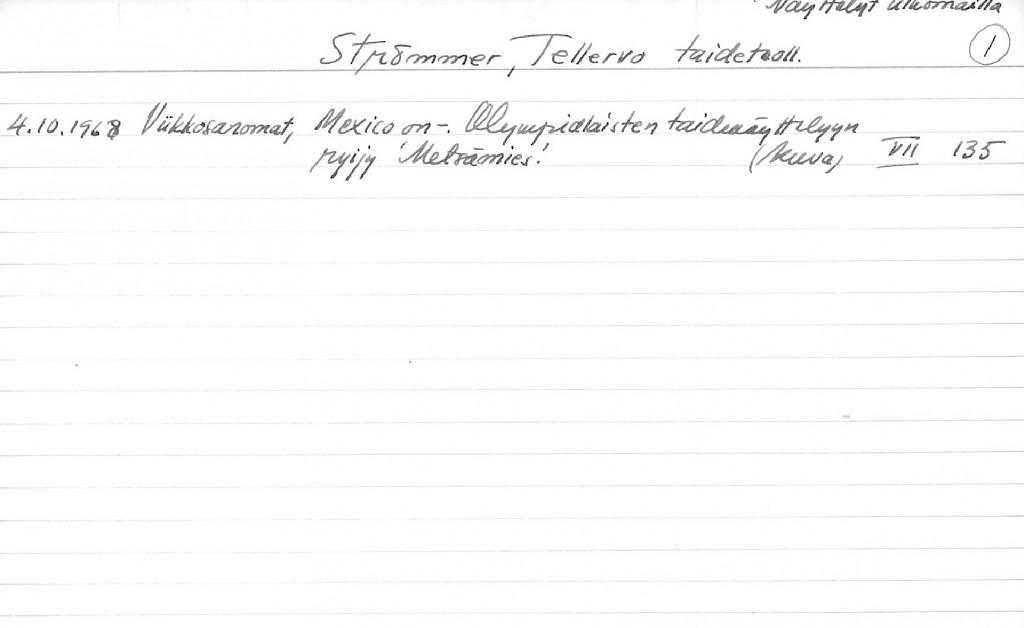 Näyttelyt ulkomailla
Strömmer, Tellervo taideteoll. 1
4.10.1968 Viikkosanomat, Mexico on -. Olympialaisten taidenäyttelyyn
ryijy 'Metsämies'. (kuva) VII 135